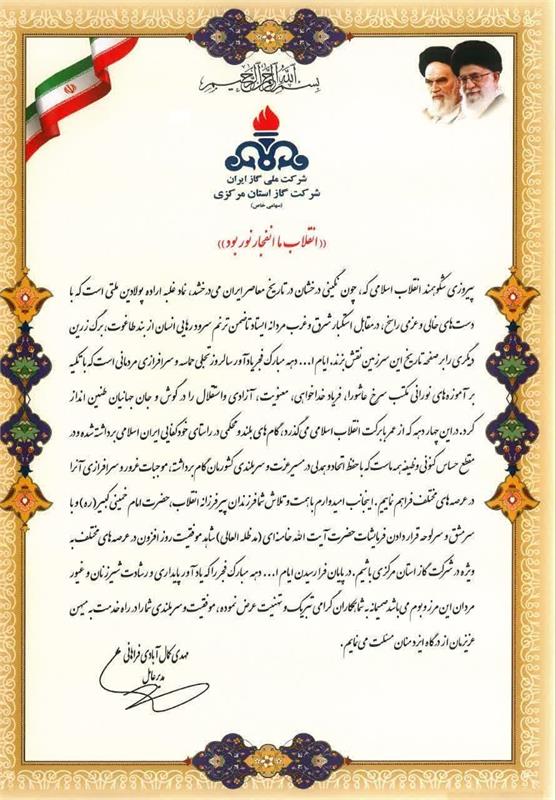 بسم الله الرحمن الرحیم
شرکت ملی گاز ایران
شرکت گاز استان مرکزی
(سهامی خاص)
((انقلاب ما انفجار نور بود))
پیروزی شکوهمند انقلاب اسلامی که، چون نگینی درخشان در تاریخ معاصر ایران می‌درخشد، نماد غلبه اراده پولادین ملتی است که با
دست‌های خالی و عزمی راسخ، در مقابل استکبار شرق و غرب مردانه ایستاد تا ضمن ترنم سرود رهایی انسان از بند طاغوت، برگ زرین
دیگری را بر صفحه تاریخ این سرزمین نقش بزند. ایام ا... دهه مبارک فجر یادآور سالروز تجلی حماسه و سرافرازی مردمانی است که با تکیه
بر آموزه‌های نورانی مکتب سرخ عاشورا، فریاد خداخواهی، معنویت، آزادی و استقلال را در گوش و جان جهانیان طنین انداز
کرد. در این چهار دهه که از عمر با برکت انقلاب اسلامی می‌گذرد، گام‌های بلند و محکمی در راستای خودکفایی ایران اسلامی برداشته شده و در
مقطع حساس کنونی وظیفه همه ماست که با حفظ اتحاد و همدلی در مسیر عزت و سربلندی کشورمان گام برداشته، موجبات غرور و سرافرازی آنرا
در عرصه‌های مختلف فراهم نماییم. اینجانب امیدوارم با همت و تلاش شما فرزندان پیر فرزانه انقلاب، حضرت امام خمینی کبیر(ره) و با
سرمشق و سرلوحه قرار دادن فرمایشات حضرت آیت الله خامنه‌ای (مدظله العالی) شاهد موفقیت روز افزون در عرصه‌های مختلف به
ویژه در شرکت گاز استان مرکزی باشیم. در پایان فرا رسیدن ایام ا... دهه مبارک فجر را که یادآور پایداری و رشادت شیر زنان و غیور
مردان این مرز و بوم می‌باشد صمیمانه به شما همکاران گرامی تبریک و تهنیت عرض نموده، موفقیت و سربلندی شما را در راه خدمت به میهن
عزیزمان از درگاه ایزد منان مسئلت می‌نمایم.
مهدی کمال آبادی فراهانی
مدیرعامل